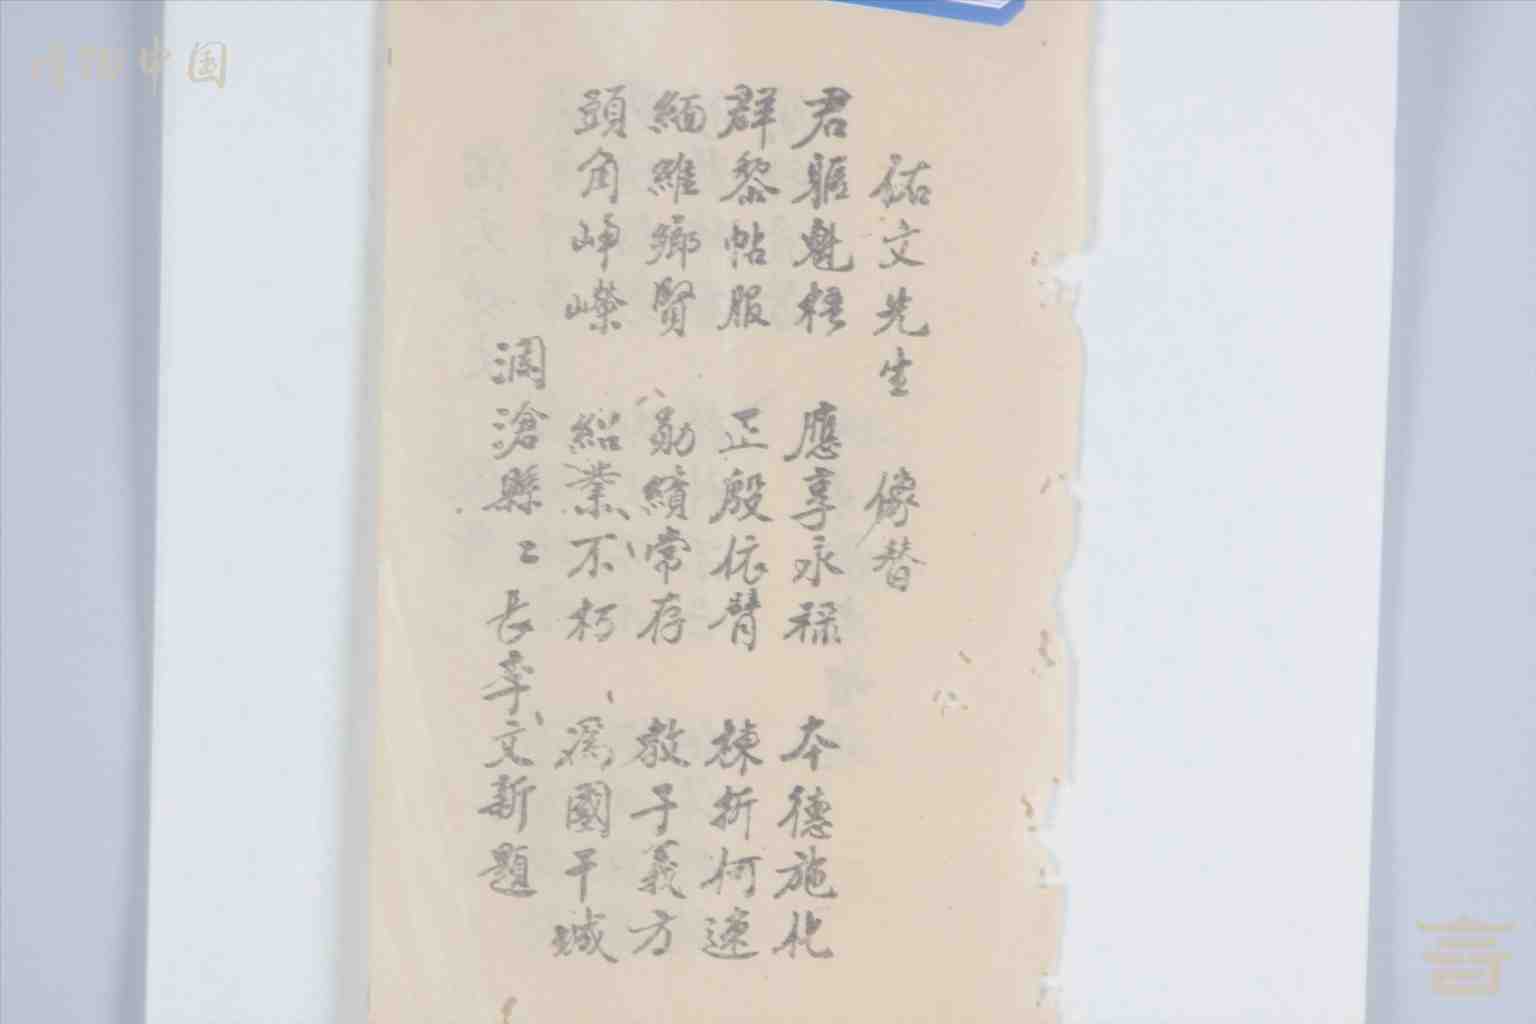 祐文先生 像替
君軀魁梧 應享永祿 本德施化
群黎帖服 正殷依臂 棟折何速
緬維鄉賢 勛績常存 教子義方
頭角崢嶸 紹業不朽 為國干城
瀾滄縣〻長李文新題
中国